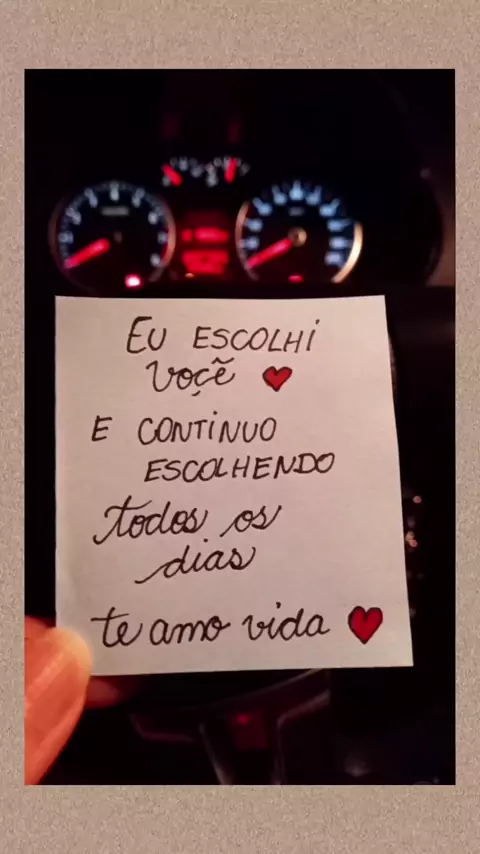 EU ESCOLHI
Voçẽ ♥
E CONTINUO
ESCOLHENDO
todos os
dias
te amo vida ♥